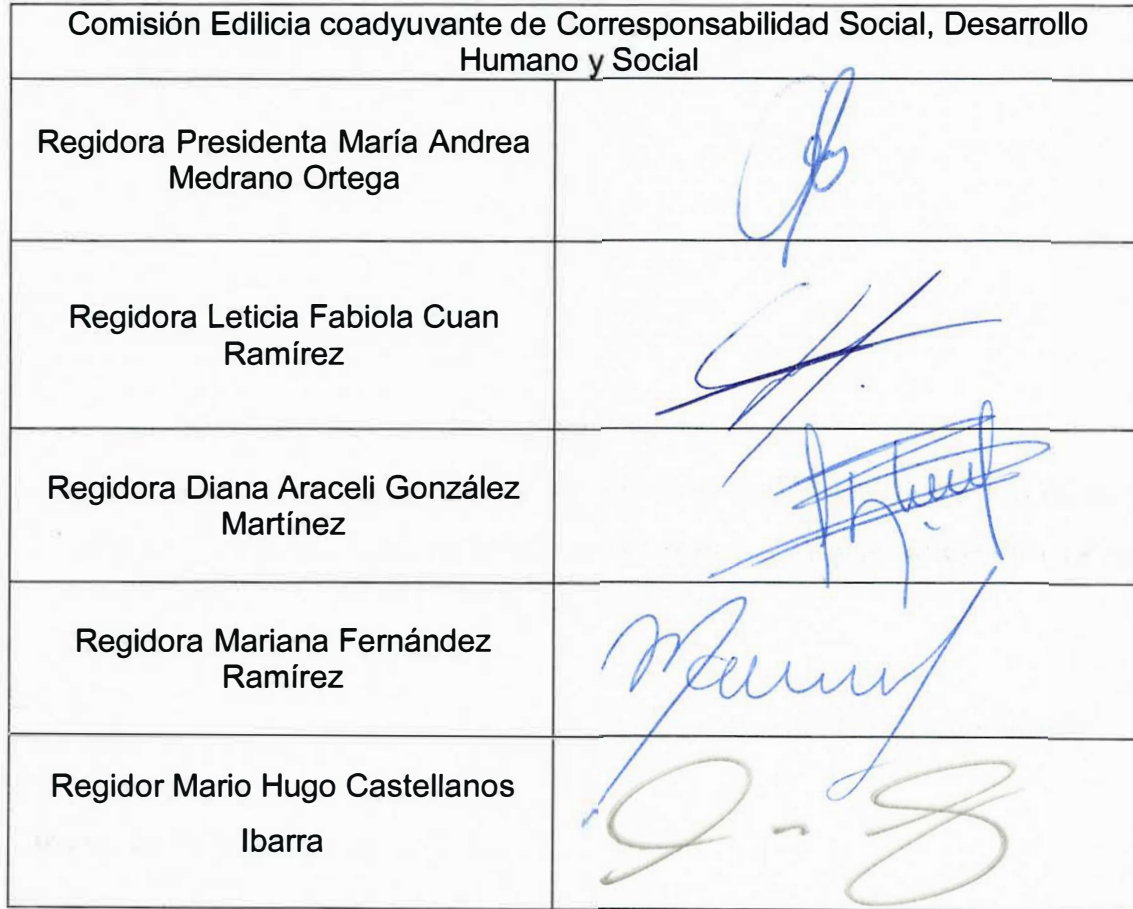 Comisión Edilicia coadyuvante de Corresponsabilidad Social, Desarrollo
Humano y Social
Regidora Presidenta María Andrea
Medrano Ortega
Regidora Leticia Fabiola Cuan
Ramírez
Regidora Diana Araceli González
Martínez
Regidora Mariana Fernández
Ramírez
Regidor Mario Hugo Castellanos
Ibarra